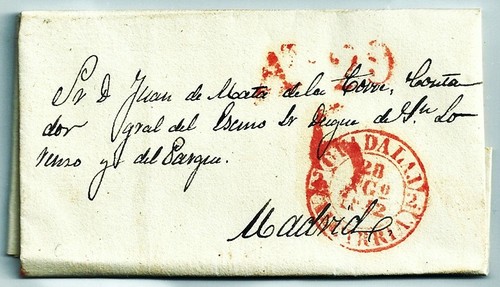 A.
Sr D Juan de Mata de la Torre, Conta
dor gral del Escmo Sr Duque de Sn Lo
renzo y del Parque.
GUADALAJARA
28
AGO
Madrid